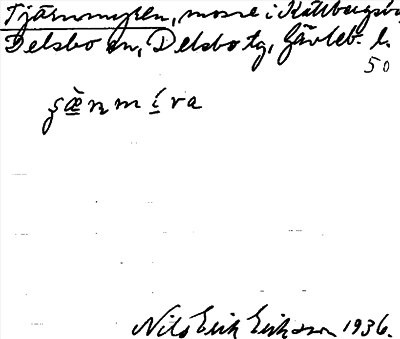 Tjärnmyren, mosse i Källbergsbo,
Delsbo sn, Delsbo tg, Gävleb. l.
50
Nils Erik Eriksson 1936.